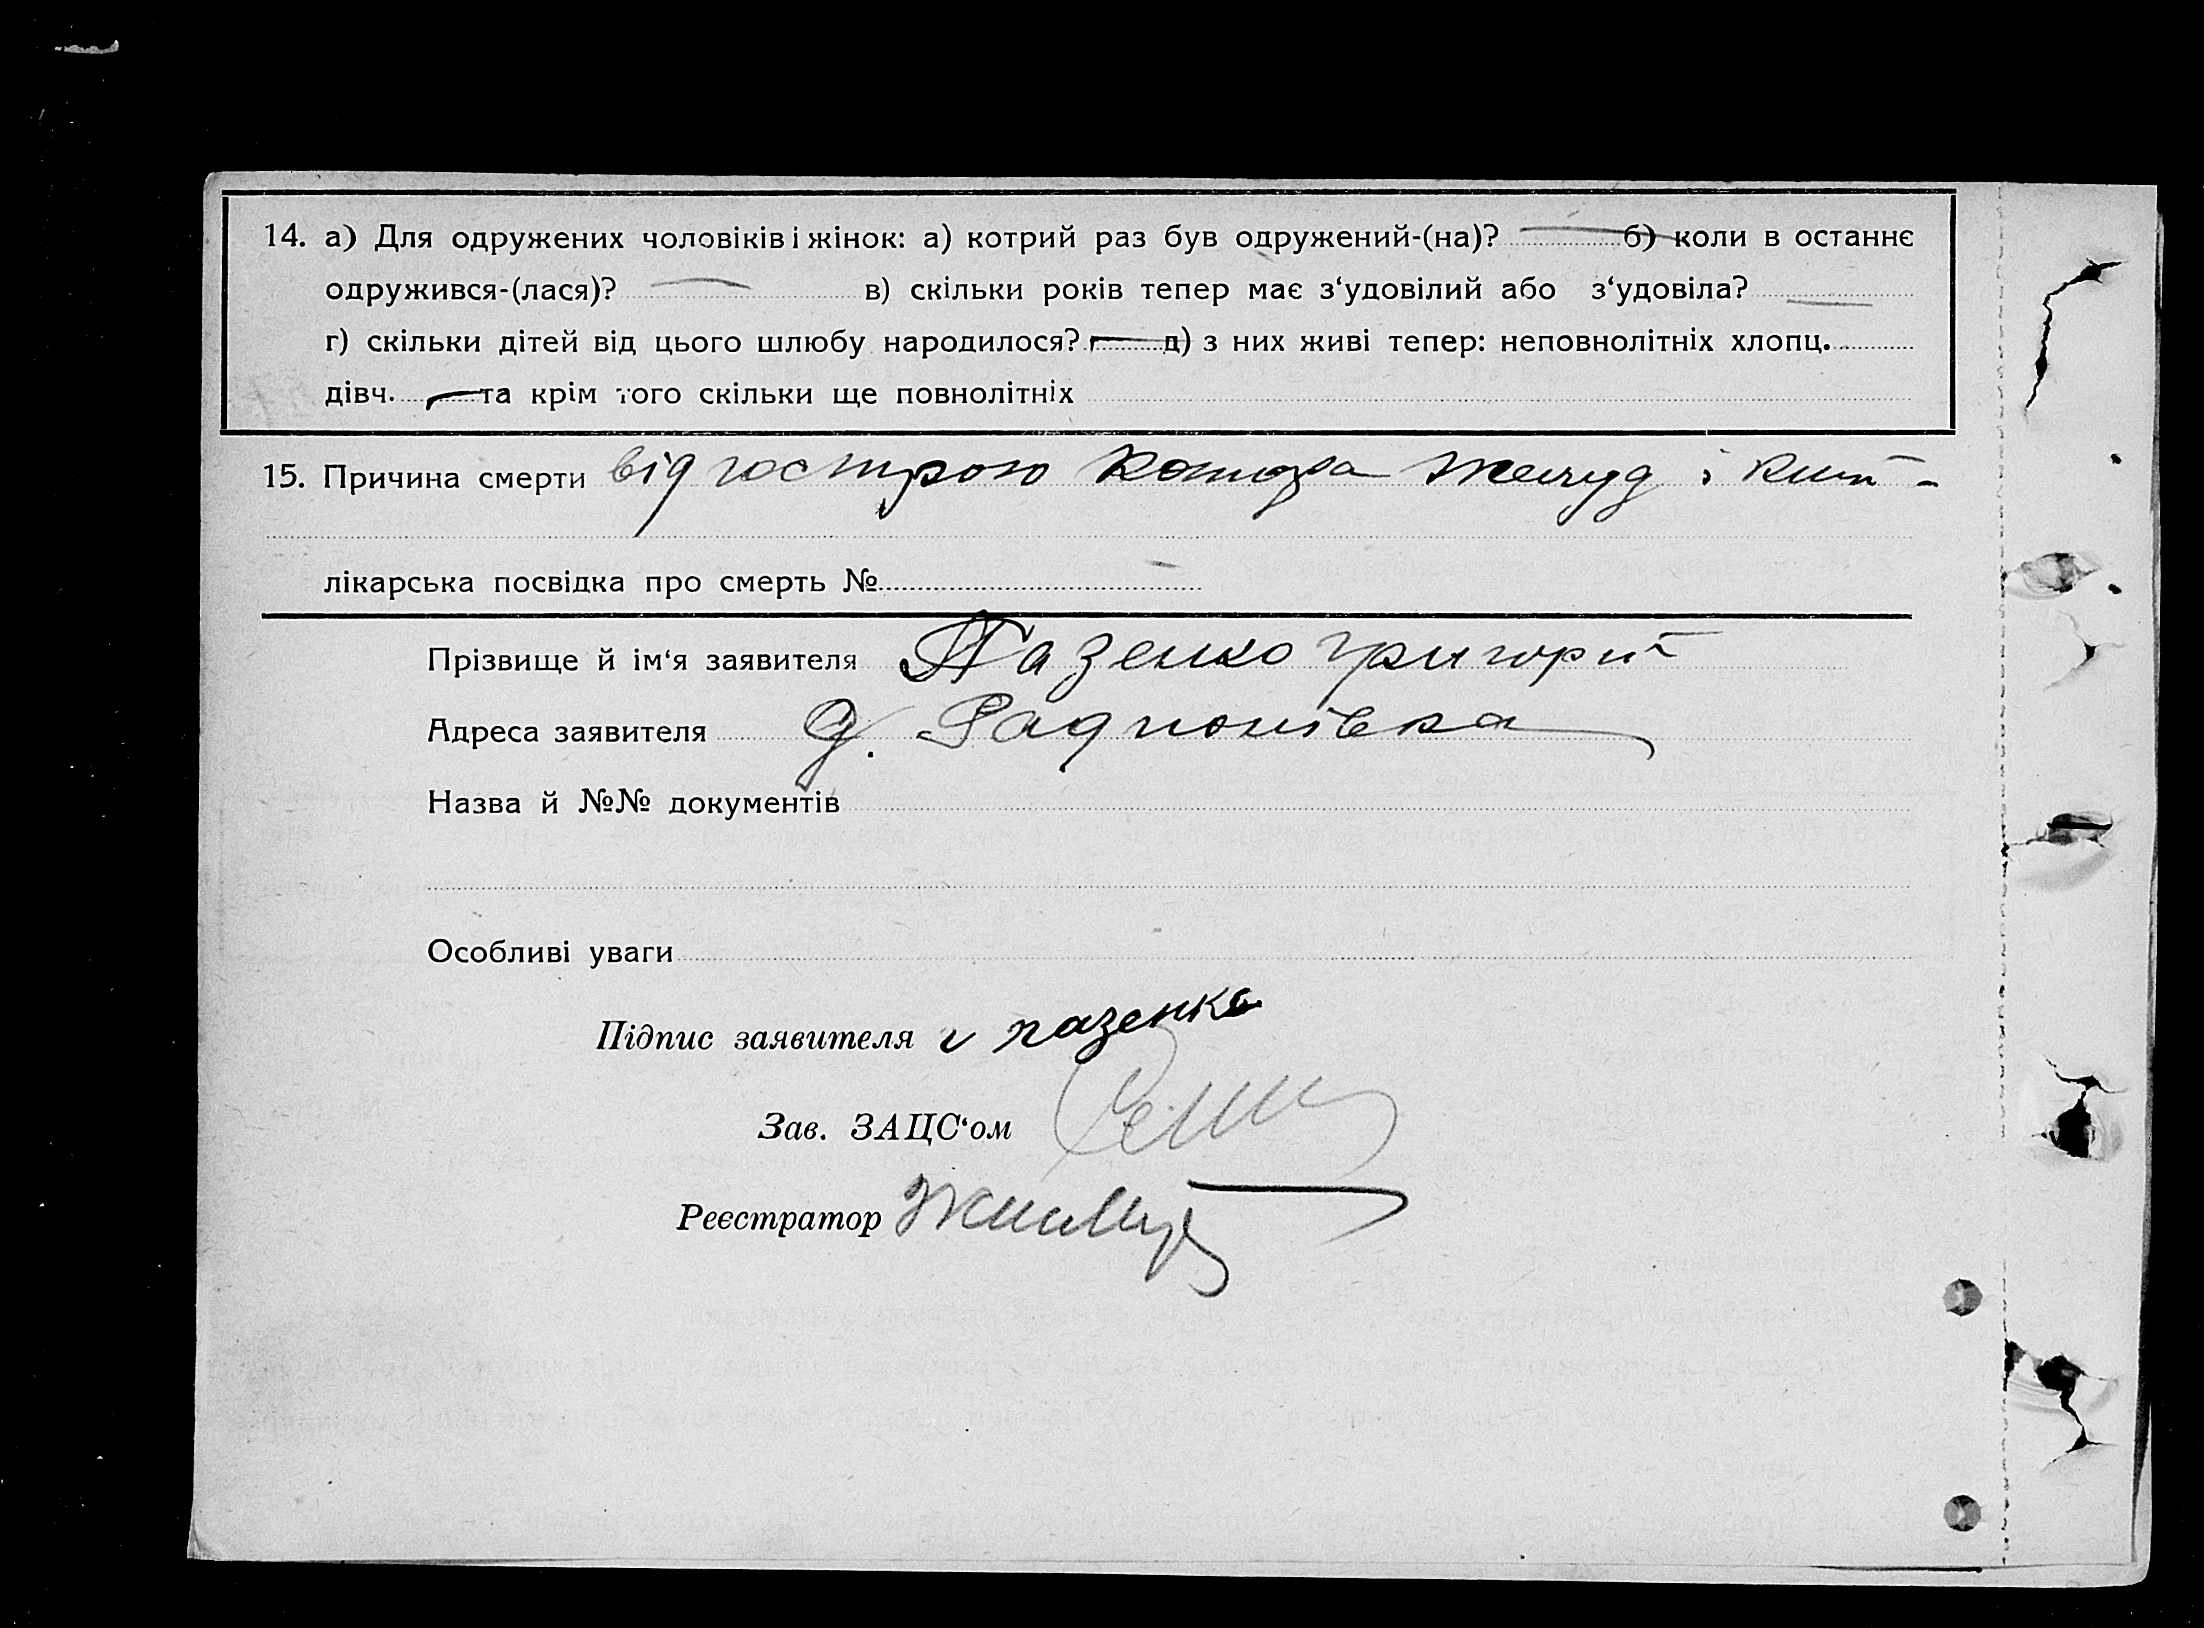 14. а) Для одружених чоловіків і жінок: а) котрий раз був одружений-(на)? б) коли в останнє
одружився-(лася)? в) скільки років тепер має з‘удовілий або з‘удовіла?
г) скільки дітей від цього шлюбу народилося? д) з них живі тепер: неповнолітніх хлопц.
дівч. та крім того скільки ще повнолітніх
15. Причина смерти від гострою катара желуд і киш -
лікарська посвідка про смерть № -
Прізвище й ім‘я заявителя Пазенко Григорий
Адреса заявителя д. Радионівка
Назва й №№ документів
Особливі уваги
Підпис заявителя пазенко
Зав. ЗАЦС‘ом
Реєстратор